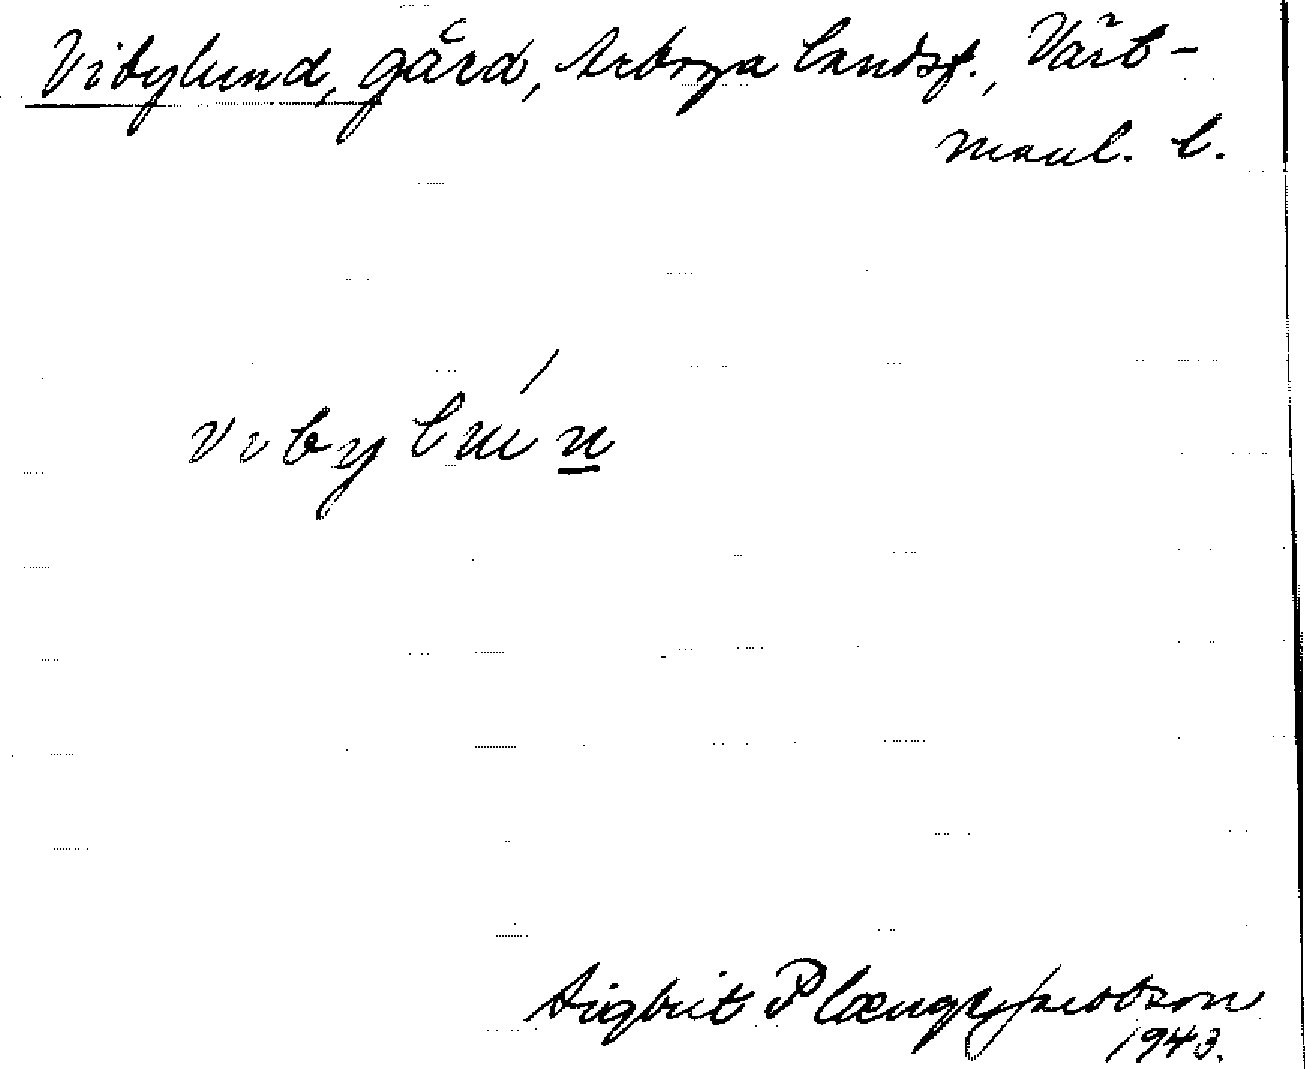 Vibylund, gård, Arboga landsf., Väst-
manl. l.
vibylún
Sigbrit Plænge Jacobson
1943.